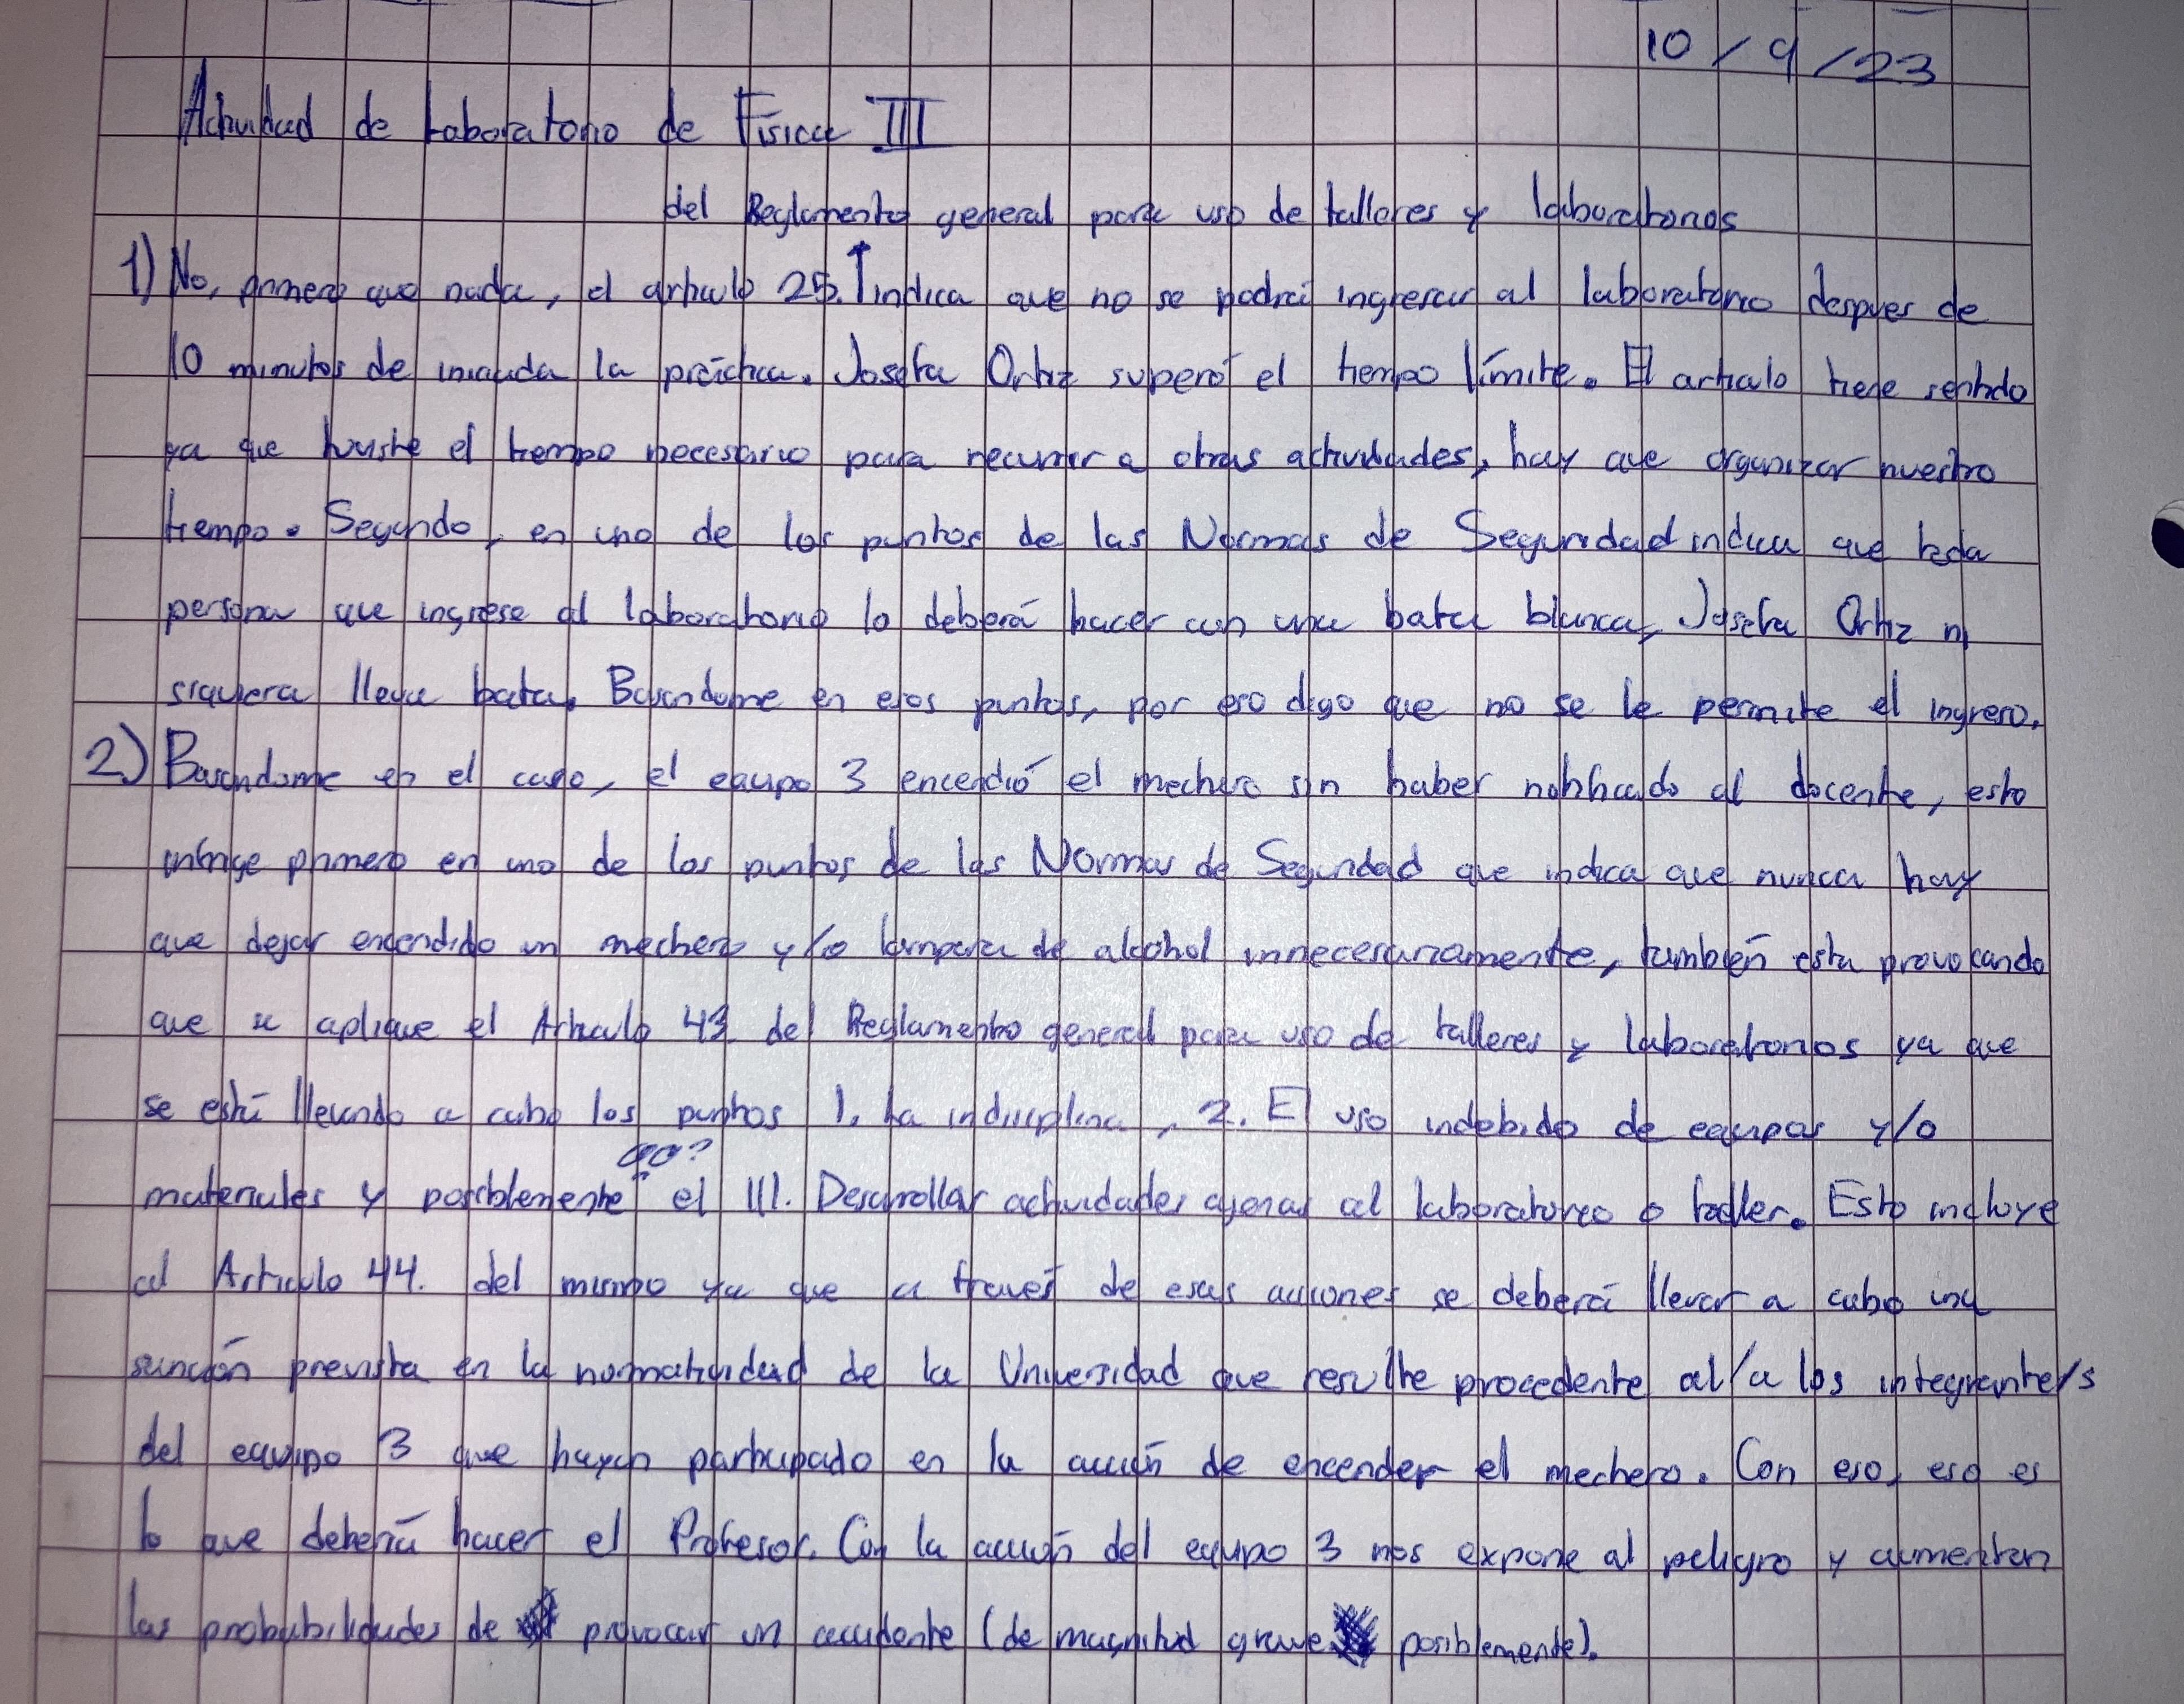 10/9/23
Actividad de Laboratorio de Física III
del Reglamento general para uso de talleres y laboratorios
1) No, primero que nada, el artículo 25.↑ indica que no se podrá ingresar al laboratorio despues de
10 minutos de iniciada la práctica. Josefa Ortiz superó el tiempo límite. El articulo tiene sentido
ya que existe el tiempo necesario para recurrir a otras actividades, hay que organizar nuestro
tiempo. Segundo, en uno de los puntos de las Normas de Seguridad indica que toda
persona que ingrese al laboratorio lo deberá hacer con una bata blanca, Josefa Ortiz ni
siquiera lleva bata. Basandome en esos puntos, por eso digo que no se le permite el ingreso.
2) Basandome en el caso, el equipo 3 encendió el mechero sin haber notificado al docente, esto
infringe primero en uno de los puntos de las Normas de Seguridad que indica que nunca hay
que dejar encendido un mechero y/o lampara de alcohol innecesariamente, también esta provocando
que se aplique el Articulo 43 del Reglamento general para uso de talleres y laboratorios ya que
se está llevando a cabo los puntos 1. La indisciplina, 2. El uso indebido de equipos y/o
materiales y posiblemente el III. Desarrollar actividades ajenas al laboratorio o taller. Esto incluye
al Articulo 44. del mismo ya que a través de esas acciones se deberá llevar a cabo una
sanción prevista en la normatividad de la Universidad que resulte procedente al/a los integrante/s
del equipo 3 que hayan participado en la acción de encender el mechero. Con eso, eso es
lo que debería hacer el Profesor. Con la acción del equipo 3 nos expone al peligro y aumentan
las probabilidades de provocar un accidente (de magnitud grave posiblemente).